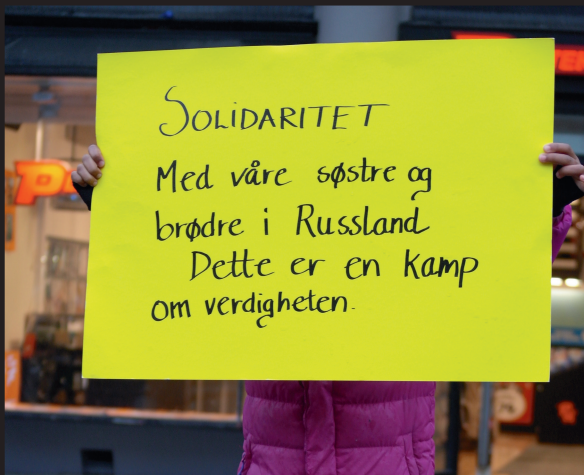 SOLiDARITET
Med våre søstre og
brødre i Russland
Dette er en kamp
om verdigheten.